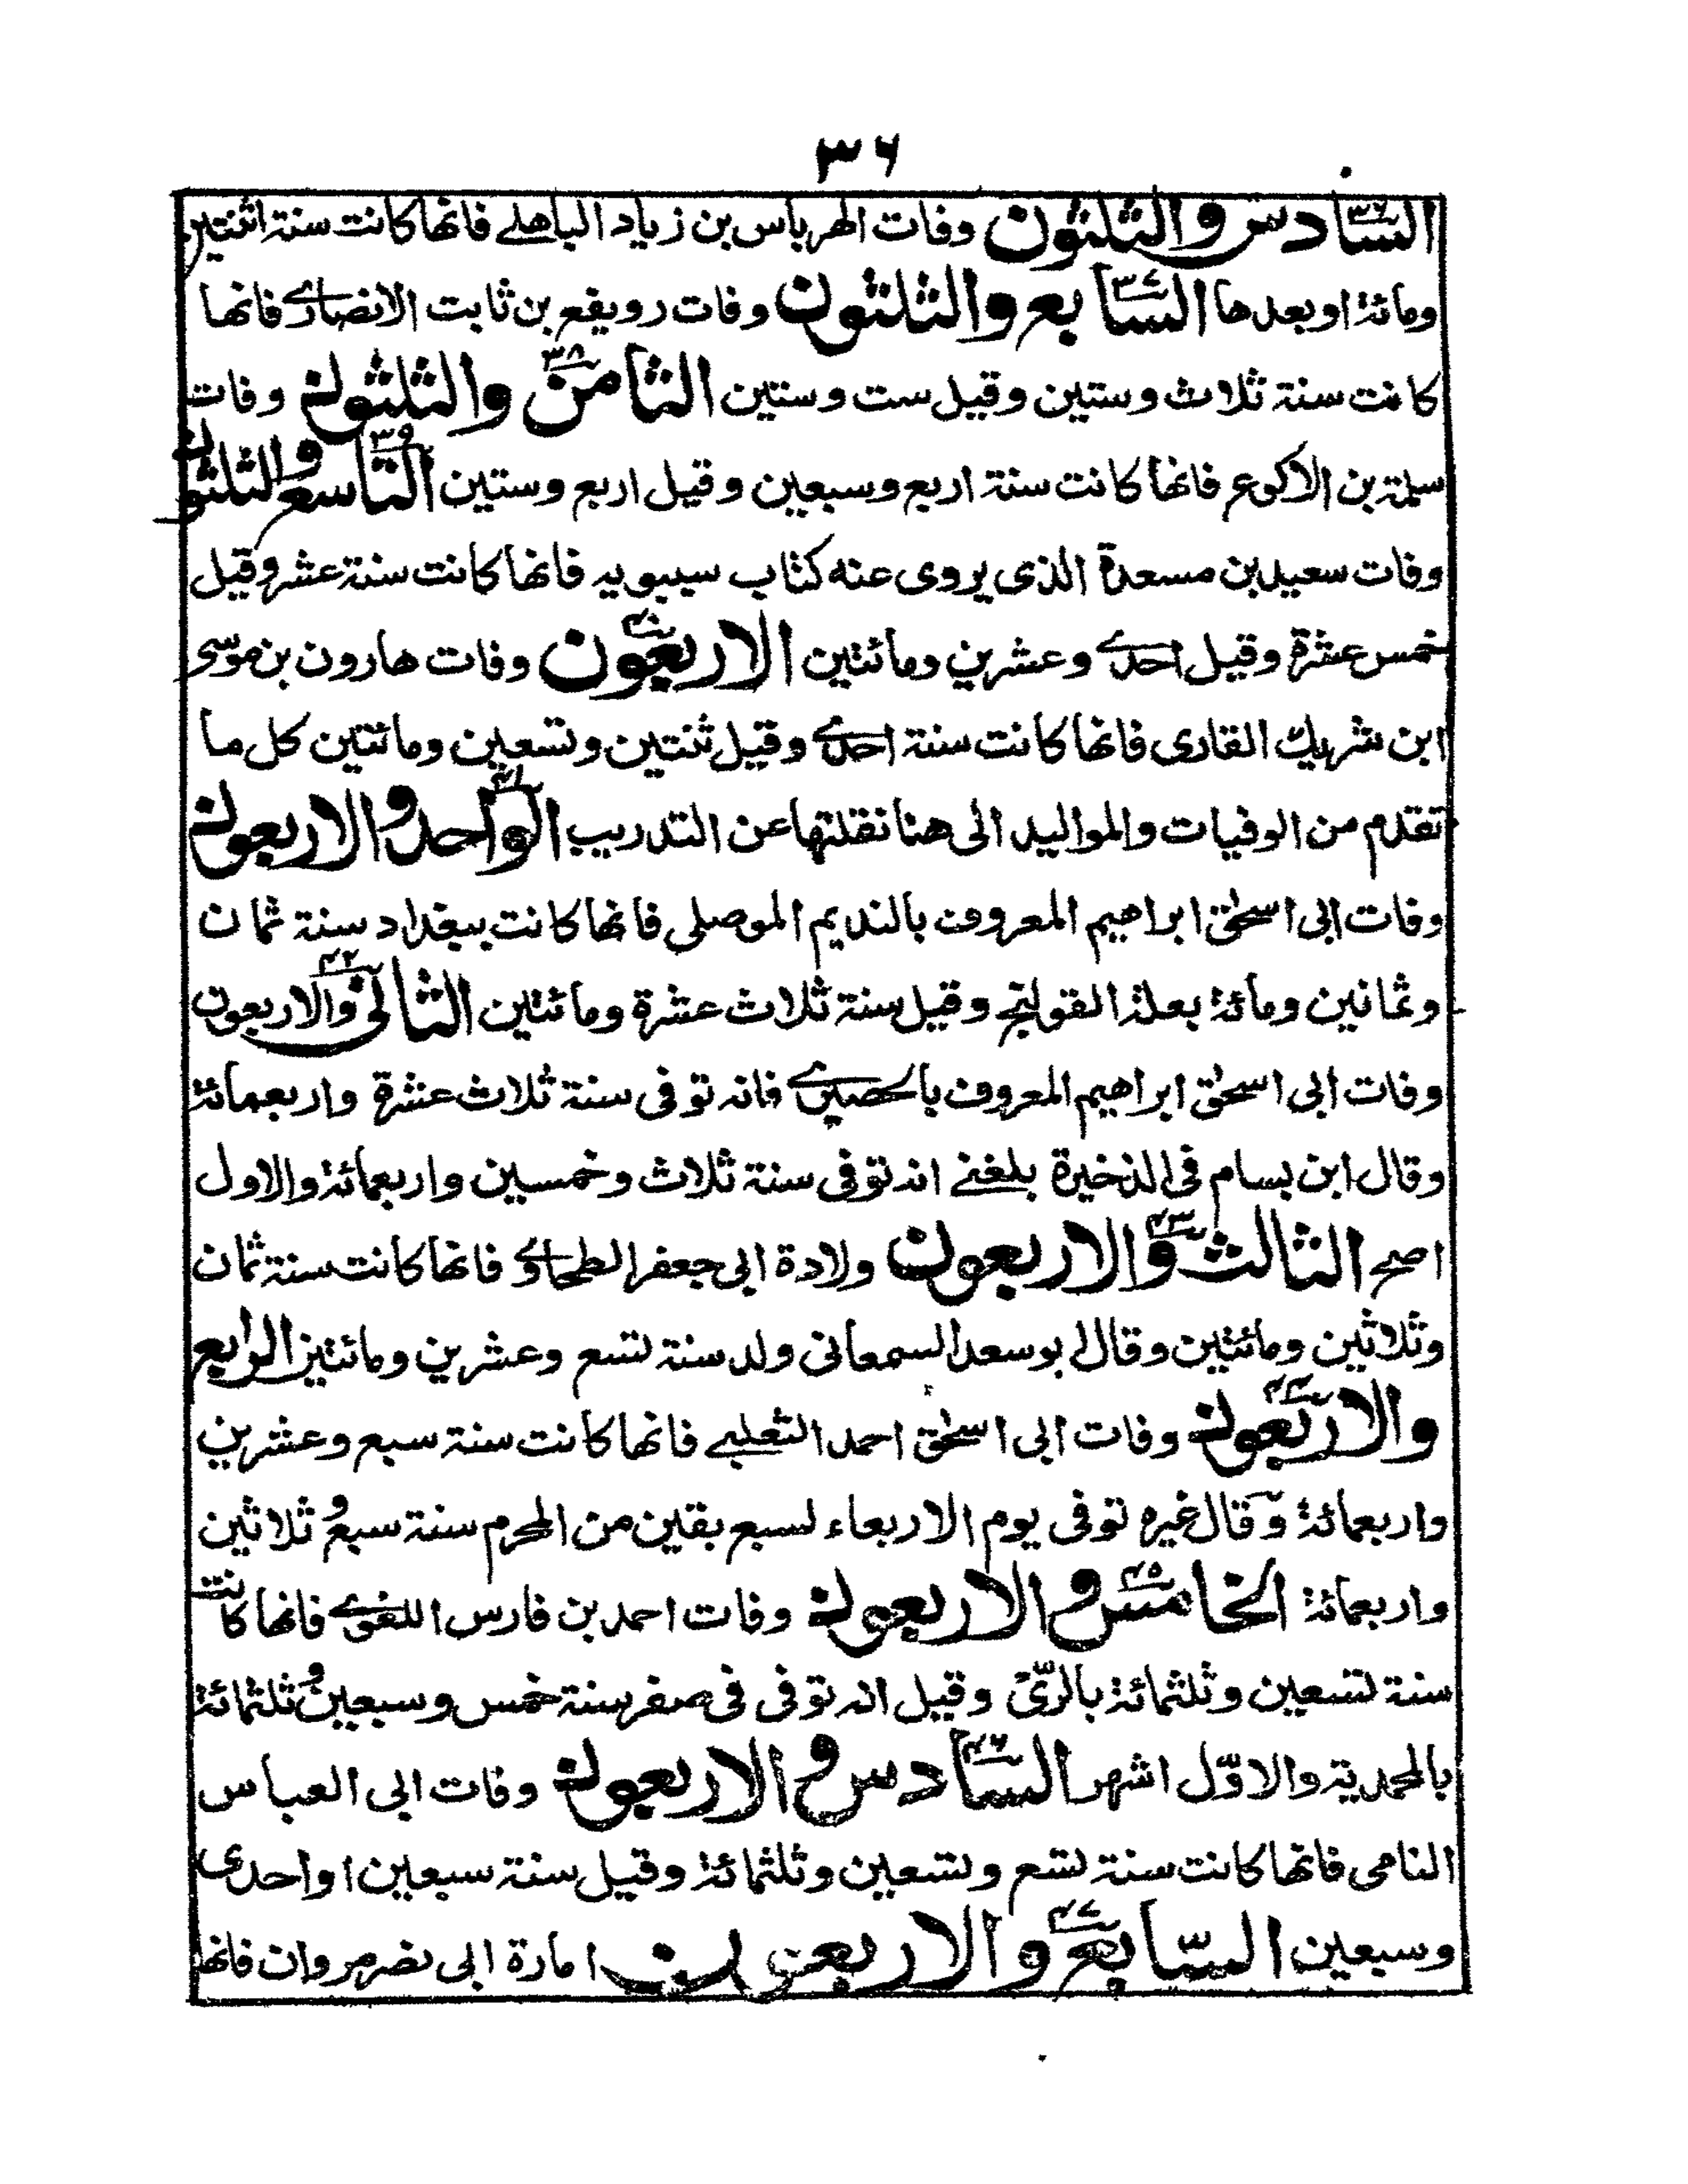 ٣٦
السادس والثلثون وفات الهرباس بن زياد الباهلے فانها كانت سنة اثنتين
٣٦
ومائة او بعدها السابع والثلثون وفات رويفع بن ثابت الانصارے فانها
٣٧
كانت سنة ثلاث وستين وقيل ست وستين الثامن والثلثون وفات
٣٨
سلمة بن الاكوع فانها كانت سنة اربع وسبعين وقيل اربع وستين التاسع والثلثون
٣٩
وفات سعيد بن مسعدة الذى يروى عنه كتاب سيبويه فانها كانت سنة عشر وقيل
خمس عشرة وقيل احدے وعشرين ومائتين الاربعون وفات هارون بن موسى
٤٠
ابن شريك القارى فانها كانت سنة احدے وقيل ثنتين وتسعين ومائتين كل ما
تقدم من الوفيات والمواليد الى هنا نقلتها عن التدريب الواحد والاربعون
٤١
وفات ابى اسحٰق ابراهيم المعروف بالنديم الموصلى فانها كانت ببغداد سنة ثمان
وثمانين ومائة بعلة القولنج وقيل سنة ثلاث عشرة ومائتين الثانى والاربعون
٤٢
وفات ابى اسحٰق ابراهيم المعروف بالحصيرے فانه توفى سنة ثلاث عشرة واربعمائة
وقال ابن بسام فى الذخيرة بلغنے انه توفى سنة ثلاث وخمسين واربعمائة والاول
اصح الثالث والاربعون ولادة ابى جعفر الطحاوے فانها كانت سنة ثمان
٤٣
وثلاثين ومائتين وقال ابو سعد السمعانى ولد سنة تسع وعشرين ومائتين الرابع
والاربعون وفات ابى اسحٰق احمد الثعلبے فانها كانت سنة سبع وعشرين
٤٤
واربعمائة وقال غيره توفى يوم الاربعاء لسبع بقين من المحرم سنة سبع و ثلاثين
واربعمائة الخامس والاربعون وفات احمد بن فارس اللغوے فانها كانت
٤٥
سنة تسعين وثلثمائة بالرّىّ وقيل انه توفى فى صفر سنة خمس وسبعين وثلثمائة
بالمحمدية والاوّل اشهر السادس والاربعون وفات ابى العباس
٤٦
النامى فانها كانت سنة تسع وتسعين وثلثمائة وقيل سنة سبعين او احدى
وسبعين السّابع والاربعون امارة ابى نصر مروان فانها
٤٧